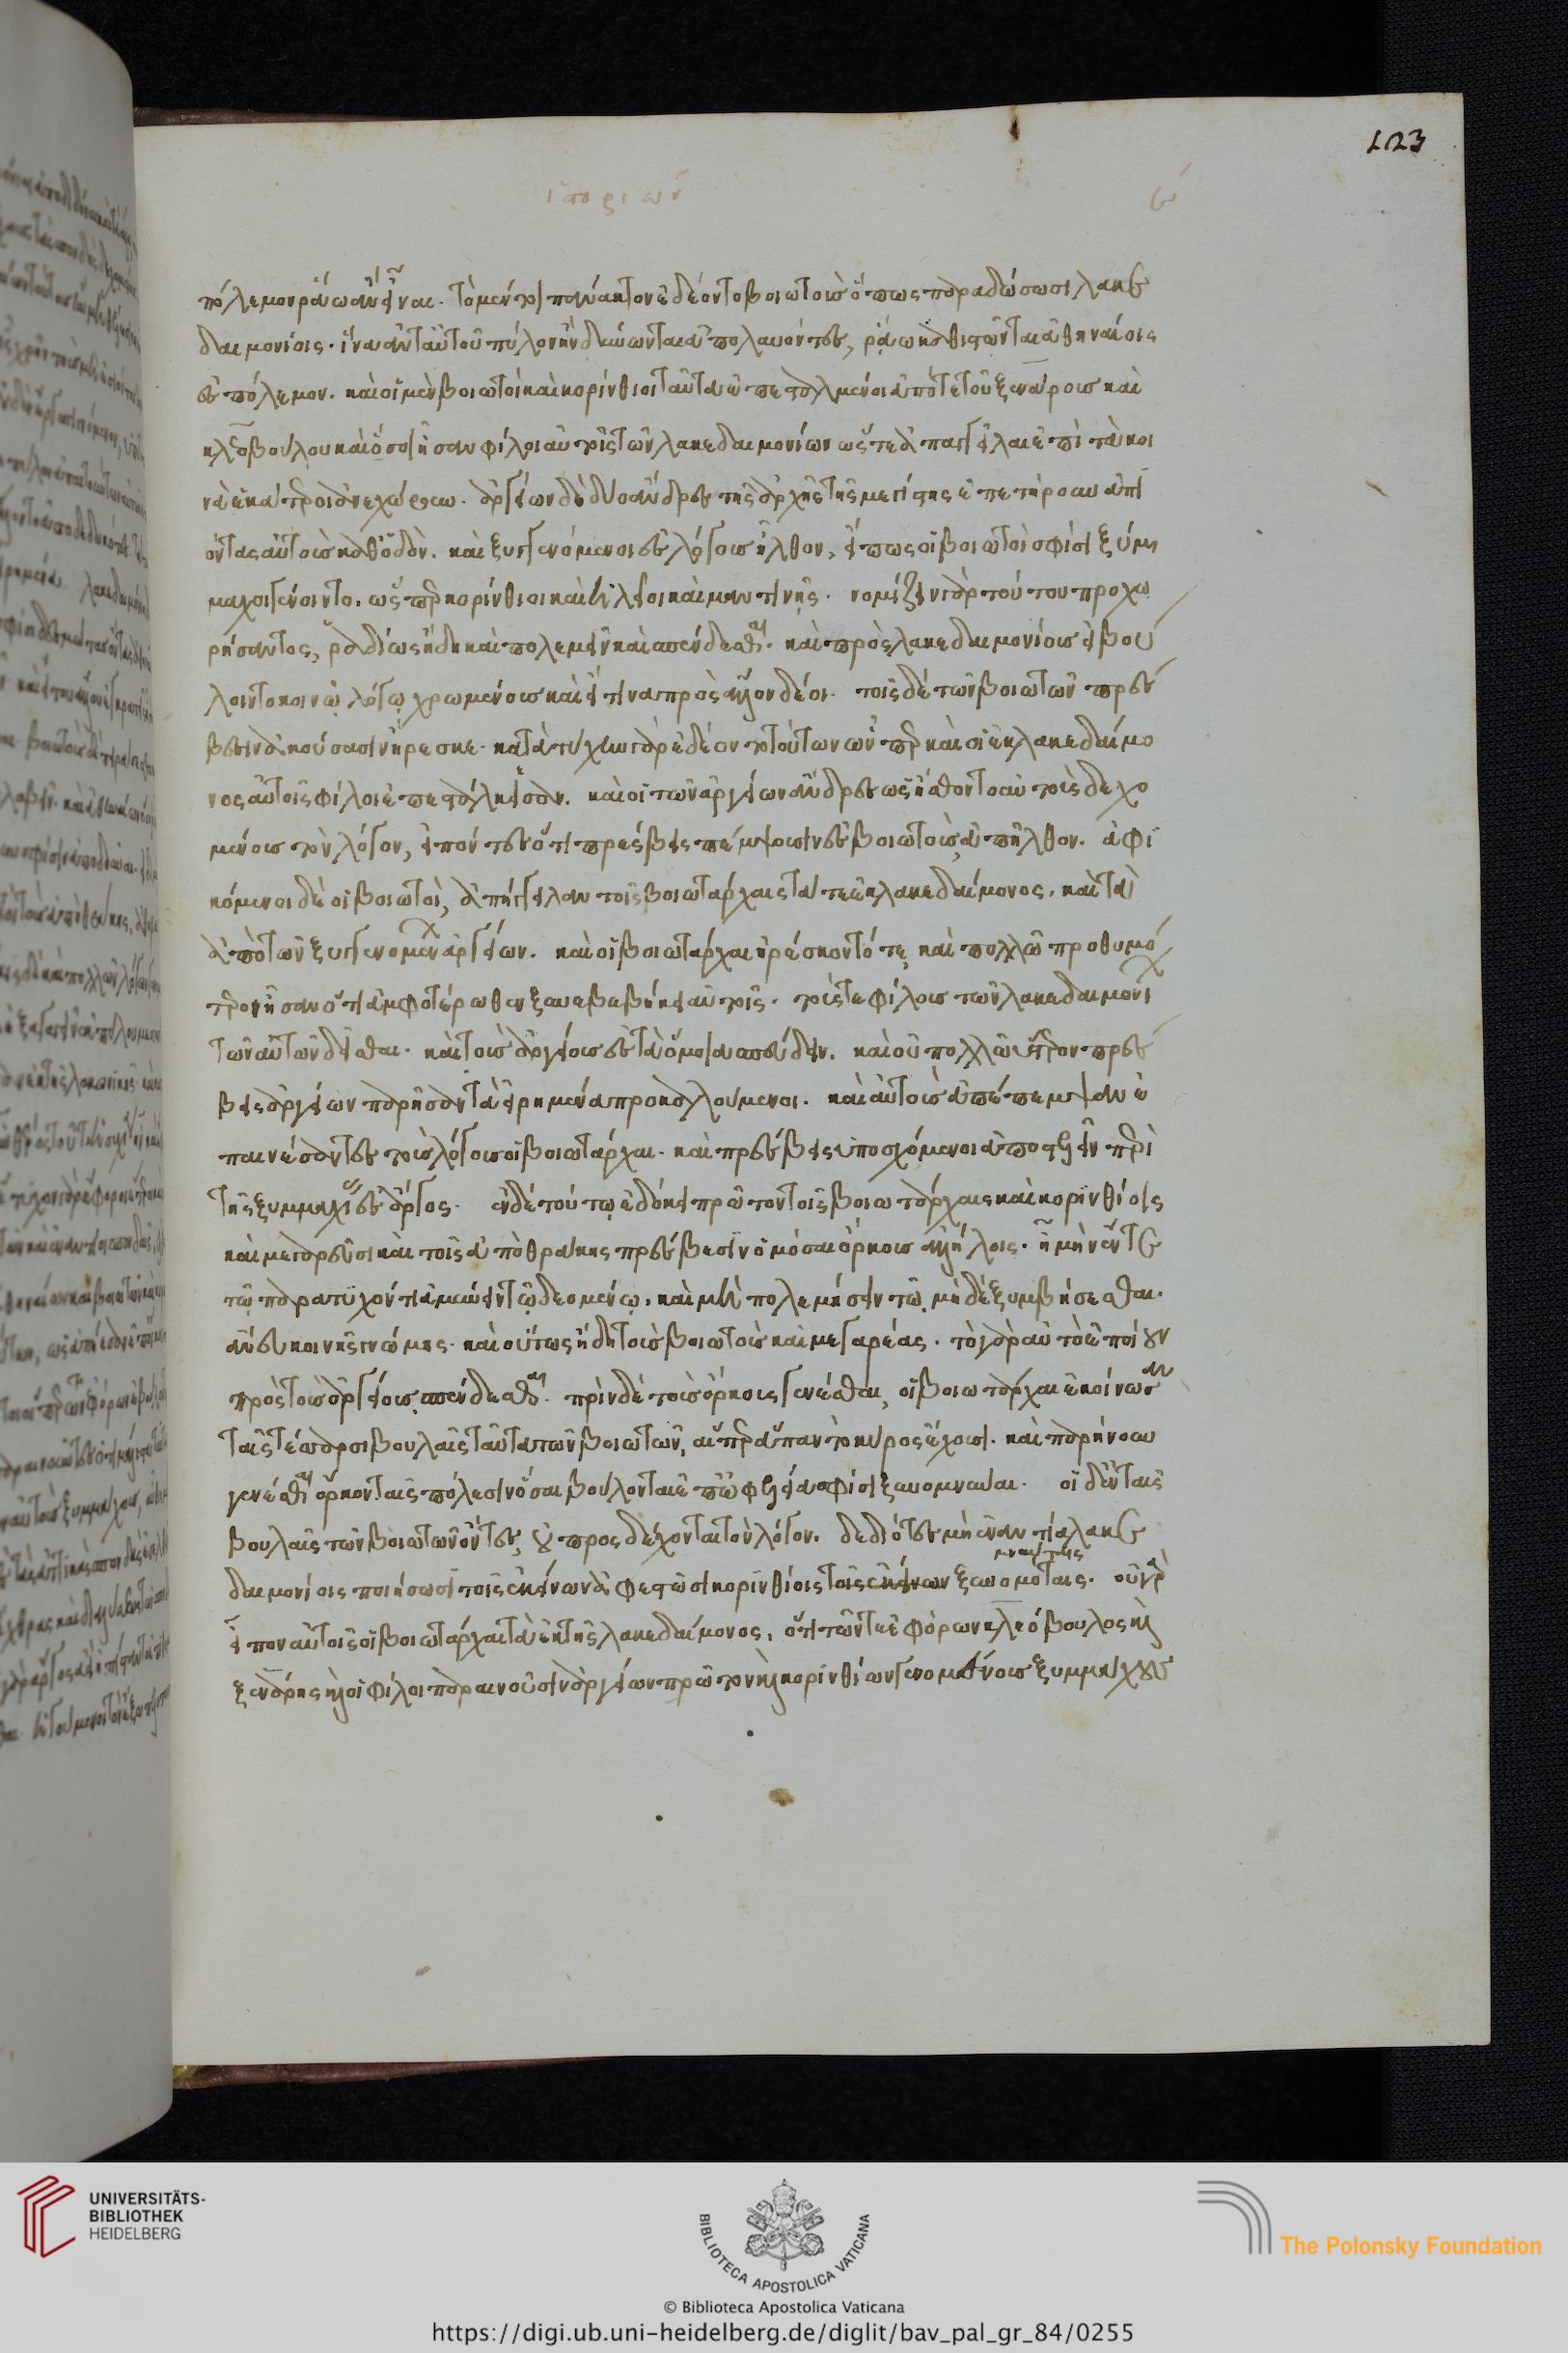 123
ἱστοριῶν
πόλεμον ῥάω ἂν εἶναι. τὸ μέντοι πάνακτον ἐδέοντο βοιωτοὺς ὅπως παραδώσωσι λακε
δαιμονίοις. ἵνα ἀντ' αὐτοῦ πύλον ἢν δύνωνται ἀπολαβόντες, ῥάω καθιστῶνται ἀθηναίοις
ἐς πόλεμον. καὶ οἱ μὲν βοιωτοὶ καὶ κορίνθιοι ταῦτα ἐπεσταλμένοι ἀπό τε τοῦ ξενάρους καὶ
κλεοβούλου καὶ ὅσοι ἦσαν φίλοι αὐτοῖς τῶν λακεδαιμονίων ὥστε ἀπαγγεῖλαι ἐπὶ τὰ κοι
νὰ ἑκάτεροι ἀνεχώρουν. ἀργείων δὲ δύο ἄνδρες τῆς ἀρχῆς τῆς μεγίστης ἐπετήρουν ἀπι
όντας αὐτοὺς καθ' ὁδόν. καὶ ξυγγενόμενοι ἐς λόγους ἦλθον, εἴ πως οἱ βοιωτοὶ σφίσι ξύμ
μαχοι γένοιντο. ὥσπερ κορίνθιοι καὶ ἠλεῖοι καὶ μαντινῆς. νομίζειν γὰρ τούτου προχω
ρήσαντος, ῥαδίως ἤδη καὶ πολεμεῖν καὶ σπένδεσθαι. καὶ πρὸς λακεδαιμονίους εἰ βού
λοιντο κοινῷ λόγῳ χρωμένους καὶ εἴ τινα πρὸς ἄλλον δέοι. τοῖς δὲ τῶν βοιωτῶν πρέσ
βεσιν ἀκούσασιν ἤρεσκε. κατὰ τύχην γὰρ ἐδέοντο τούτων ὧνπερ καὶ οἱ ἐκ λακεδαίμο
νος αὐτοῖς φίλοι ἐπεστάλκεσαν. καὶ οἱ τῶν ἀργείων ἄνδρες ὡς ᾔσθοντο αὐτοὺς δεχο
μένους τὸν λόγον, εἰπόντες ὅτι πρέσβεις πέμψουσιν ἐς βοιωτοὺς ἀπῆλθον. ἀφι
κόμενοι δὲ οἱ βοιωτοὶ, ἀπήγγειλαν τοῖς βοιωτάρχαις τά τε ἐκ λακεδαίμονος. καὶ τὰ
ἀπὸ τῶν ξυγγενομένων ἀργείων. καὶ οἱ βοιωτάρχαι ἠρέσκοντό τε, καὶ πολλῷ προθυμό
τεροι ἦσαν ὅτι ἀμφοτέρωθεν ξυνεβεβήκει αὐτοῖς. τούς τε φίλους τῶν λακεδαιμονί
τῶν αὐτῶν δεῖσθαι. καὶ τοὺς ἀργείους ἐς τὰ ὅμοια σπεύδειν. καὶ οὐ πολλῷ ὕστερον πρέσ
βεις ἀργείων παρῆσαν τὰ εἰρημένα προκαλούμενοι. καὶ αὐτοὺς ἀπέπεμψαν ἐ
παινέσαντες τοὺς λόγους οἱ βοιωτάρχαι. καὶ πρέσβεις ὑποσχόμενοι ἀποστελεῖν περὶ
τῆς ξυμμαχίας ἐς ἄργος. ἐν δὲ τούτῳ ἐδόκει πρῶτον τοῖς βοιωτάρχαις καὶ κορινθίοις
καὶ μεγαρεῦσι καὶ τοῖς ἀπὸ θρᾴκης πρέσβεσιν ὀμόσαι ὅρκους ἀλλήλοις. ἦ μὴν ἔν τε
τῷ παρατυχόντι ἀμυνεῖν τῷ δεομένῳ, καὶ μὴ πολεμήσειν τῳ μηδὲ ξυμβήσεσθαι.
ἄνευ κοινῆς γνώμης. καὶ οὕτως ἤδη τοὺς βοιωτοὺς καὶ μεγαρέας. τὸ γὰρ αὐτὸ ἐποίουν
πρὸς τοὺς ἀργείους σπένδεσθαι. πρὶν δὲ τοὺς ὅρκους γενέσθαι, οἱ βοιωτάρχαι ἐκοίνωσαν
ταῖς τέσσαρσι βουλαῖς ταῦτα τῶν βοιωτῶν, αἵπερ ἅπαν τὸ κῦρος ἔχουσι. καὶ παρῄνουν
γενέσθαι ὅρκον ταῖς πόλεσιν ὅσαι βούλονται ἐπ' ὠφελείᾳ σφίσι ξυνομνύναι. οἱ δ' ἐν ταῖς
βουλαῖς τῶν βοιωτῶν ὄντες, οὐ προσδέχονται τὸν λόγον. δεδιότες μὴ ἐναντία λακε
δαιμονίοις ποιήσωσι τοῖς ἐκείνων ἀφεστῶσι κορινθίοις τοῖς ἐκείνων ξυνομοταις. οὐ γὰρ
εἶπον αὐτοῖς οἱ βοιωτάρχαι τὰ ἐκ τῆς λακεδαίμονος, ὅτι τῶν τε ἐφόρων κλεόβουλος καὶ
ξενάρης καὶ οἱ φίλοι παραινοῦσιν ἀργείων πρῶτον καὶ κορινθίων γενομένους ξυμμάχους
UNIVERSITÄTS-
BIBLIOTHEK
HEIDELBERG
BIBLIOTECA APOSTOLICA VATICANA
The Polonsky Foundation
© Biblioteca Apostolica Vaticana
https://digi.ub.uni-heidelberg.de/diglit/bav_pal_gr_84/0255